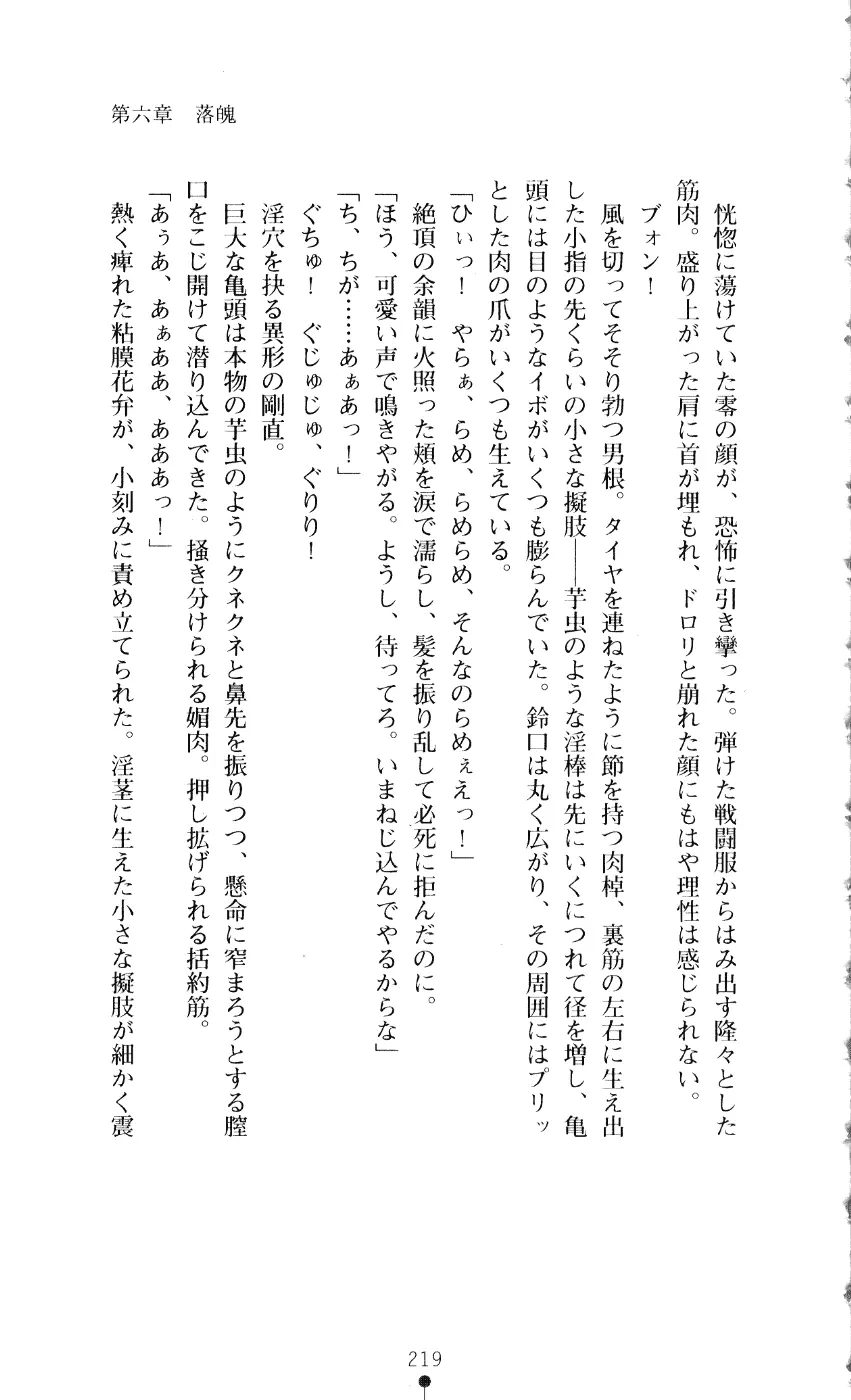 第六章　落魄
恍惚に蕩けていた零の顔が、恐怖に引き攣った。弾けた戦闘服からはみ出す隆々とした
筋肉。盛り上がった肩に首が埋もれ、ドロリと崩れた顔にもはや理性は感じられない。
ブォン！
風を切ってそそり勃つ男根。タイヤを連ねたように節を持つ肉棹、裏筋の左右に生え出
した小指の先くらいの小さな擬肢――芋虫のような淫棒は先にいくにつれて径を増し、亀
頭には目のようなイボがいくつも膨らんでいた。鈴口は丸く広がり、その周囲にはプリッ
とした肉の爪がいくつも生えている。
「ひぃっ！　やらぁ、らめ、らめらめ、そんなのらめぇえっ！」
絶頂の余韻に火照った頬を涙で濡らし、髪を振り乱して必死に拒んだのに。
「ほう、可愛い声で鳴きやがる。ようし、待ってろ。いまねじ込んでやるからな」
「ち、ちが……あぁあっ！」
ぐちゅ！　ぐじゅじゅ、ぐりり！
淫穴を抉る異形の剛直。
巨大な亀頭は本物の芋虫のようにクネクネと鼻先を振りつつ、懸命に窄まろうとする膣
口をこじ開けて潜り込んできた。掻き分けられる媚肉。押し拡げられる括約筋。
「あぅあ、あぁああ、あああっ！」
熱く痺れた粘膜花弁が、小刻みに責め立てられた。淫茎に生えた小さな擬肢が細かく震
219